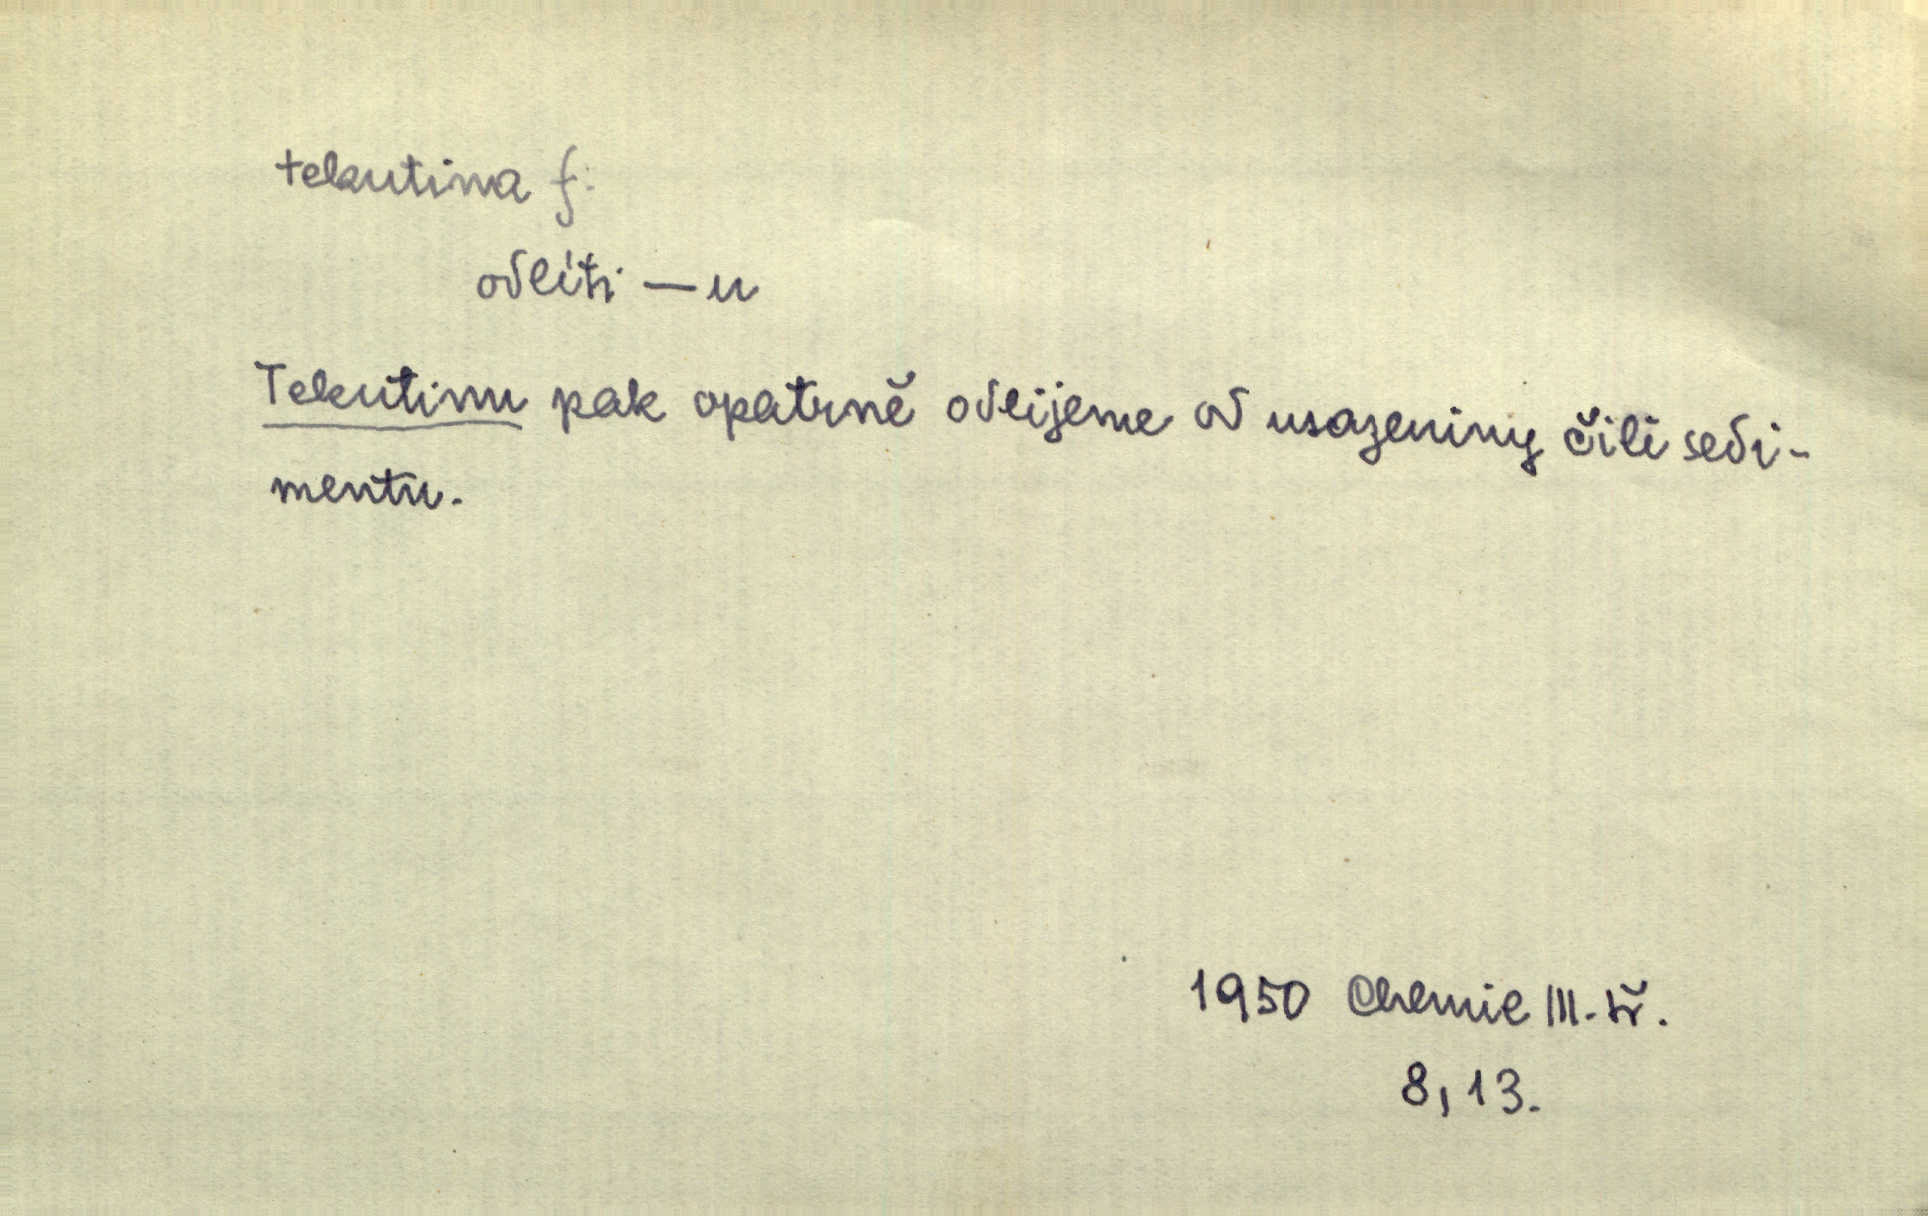 tekutina f.
odlíti — u
Tekutinu pak opatrně odlijeme od usazeniny čili sedi-
mentu.
1950 Chemie III. tř.
8, 13.